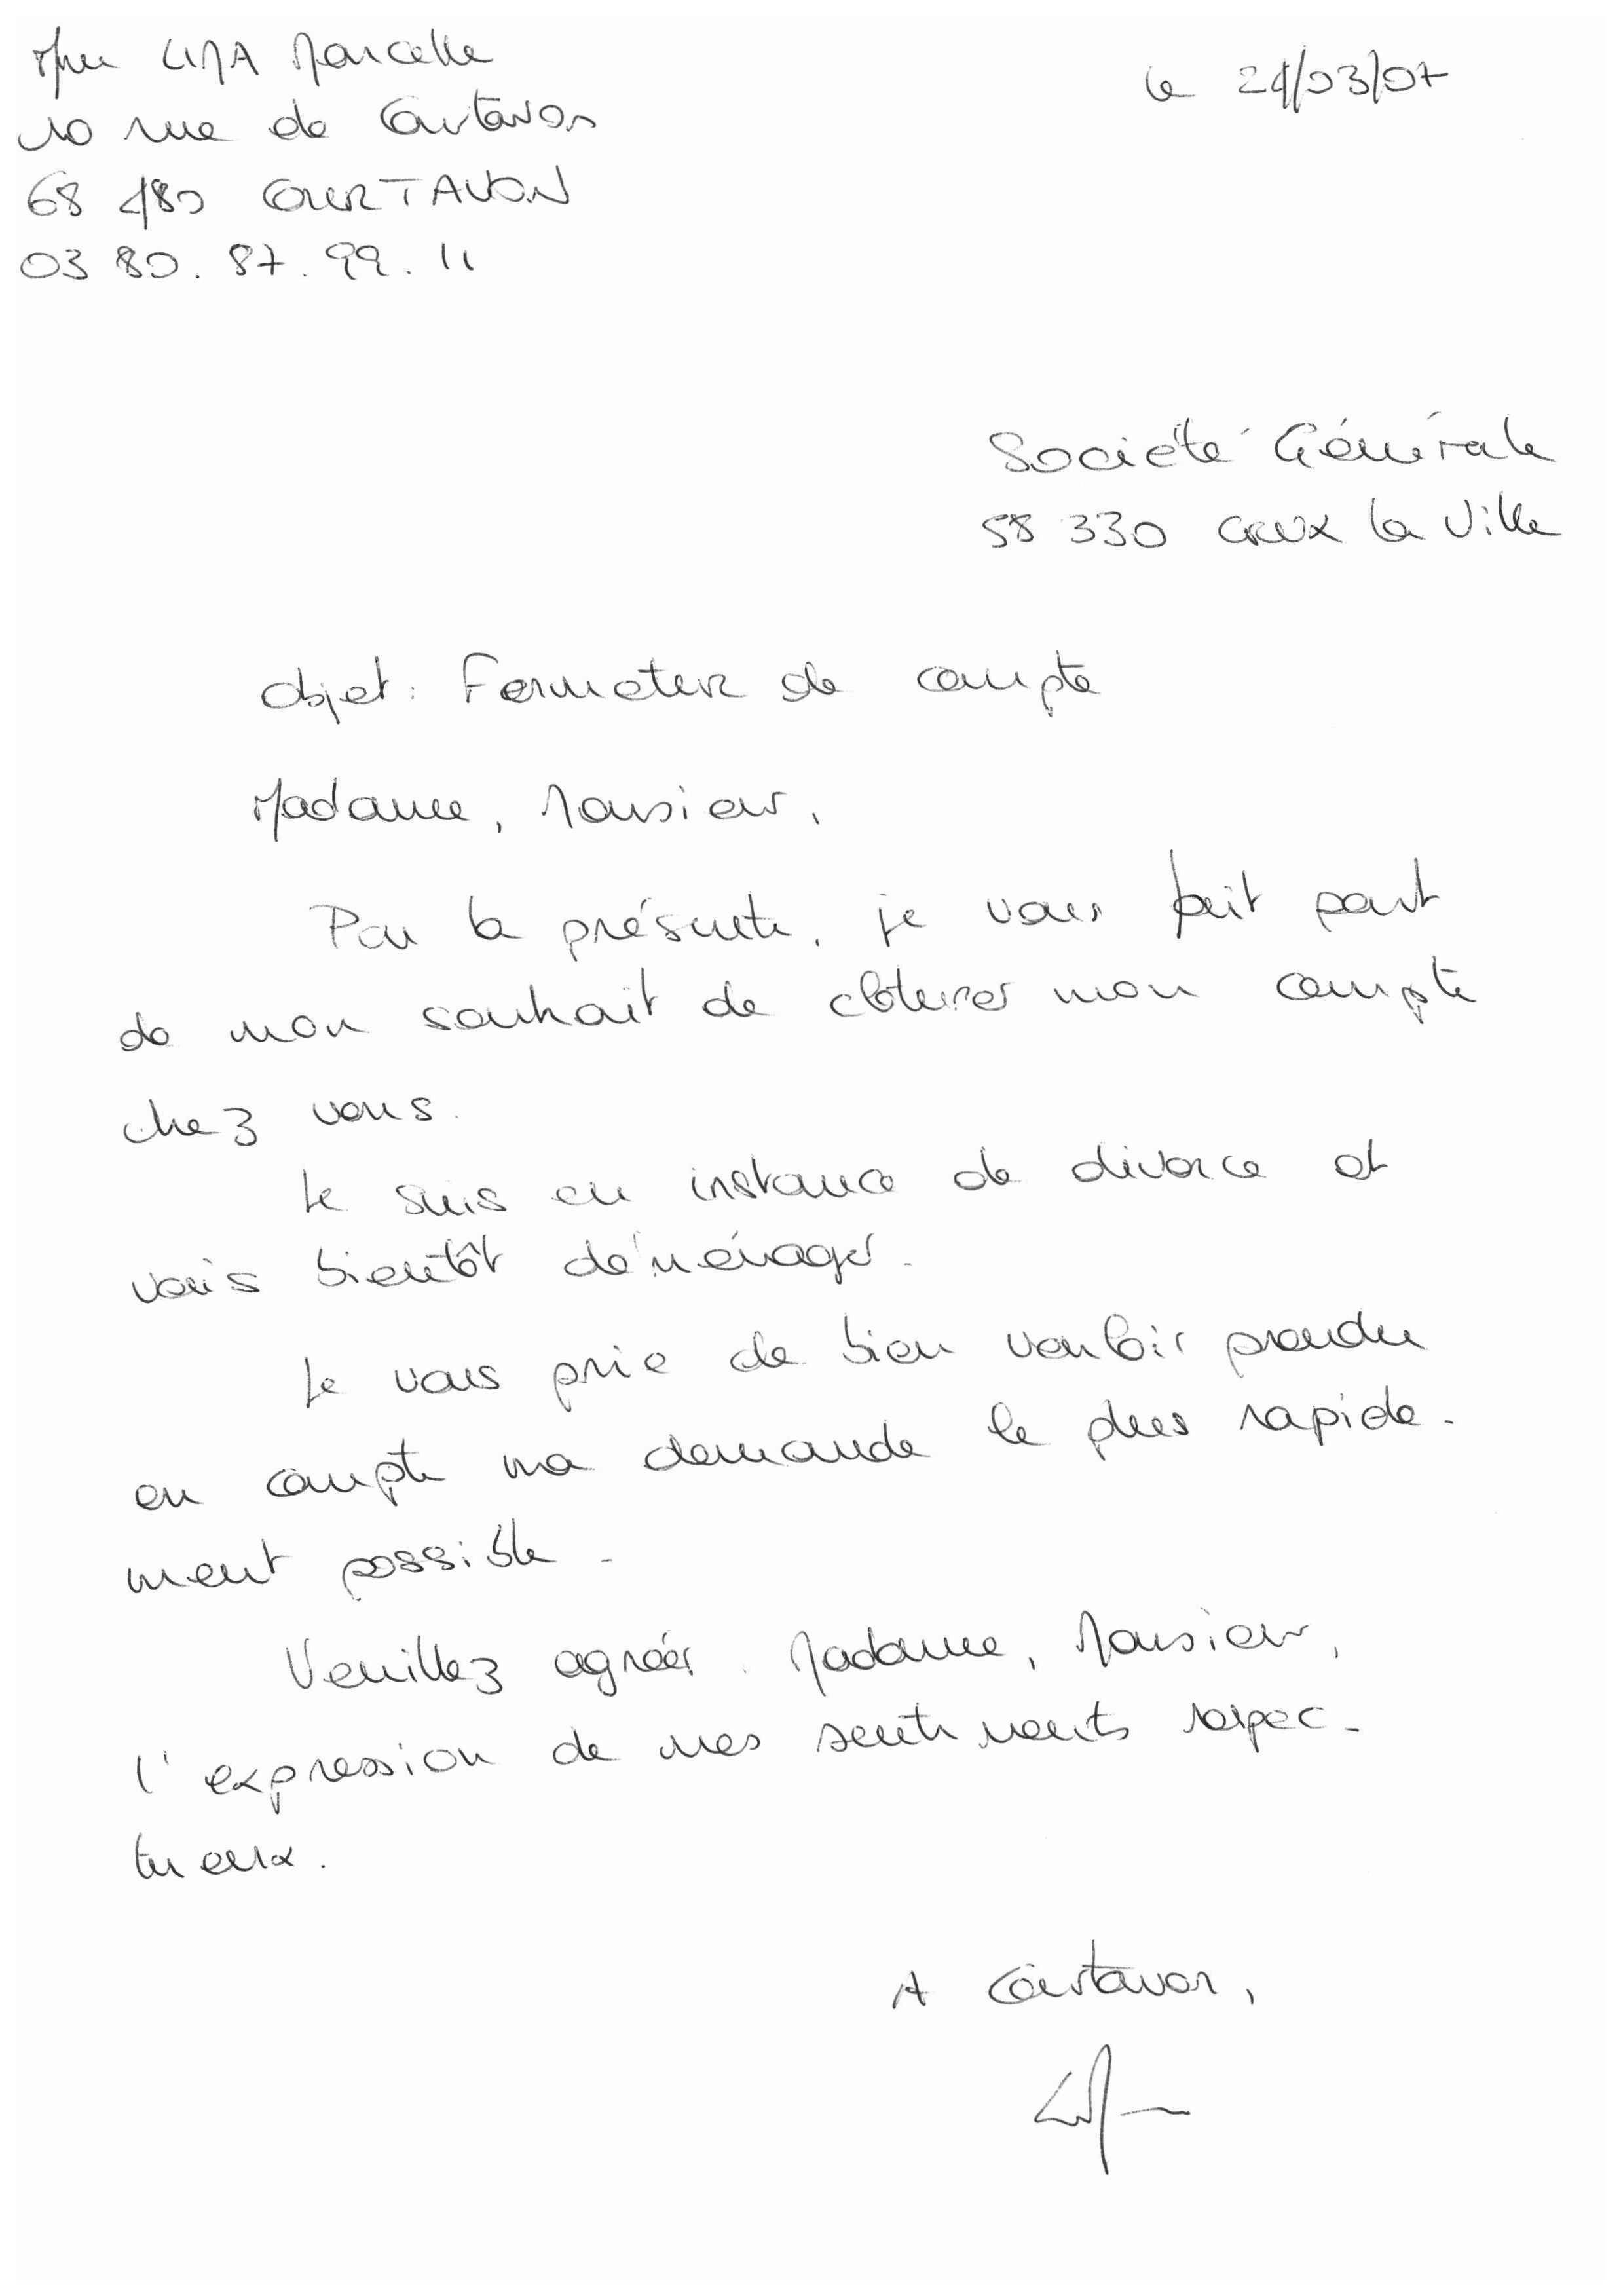 Mme LIMA Marcelle
le 21/03/07
10 rue de Courtavon
68 480 COURTAVON
03 80. 87. 99. 11
Société Générale
58 330 Crux la Ville
Objet : Fermeture de compte
Madame, Monsieur,
Par la présente, je vous fait part
de mon souhait de cloturer mon compte
chez vous.
Je suis en instance de divorce et
vais bientôt déménager.
Je vous prie de bien vouloir prendre
en compte ma demande le plus rapide-
ment possible.
Veuillez agréer, Madame, Monsieur,
l'expression de mes sentiments respec-
tueux.
A Courtavon,